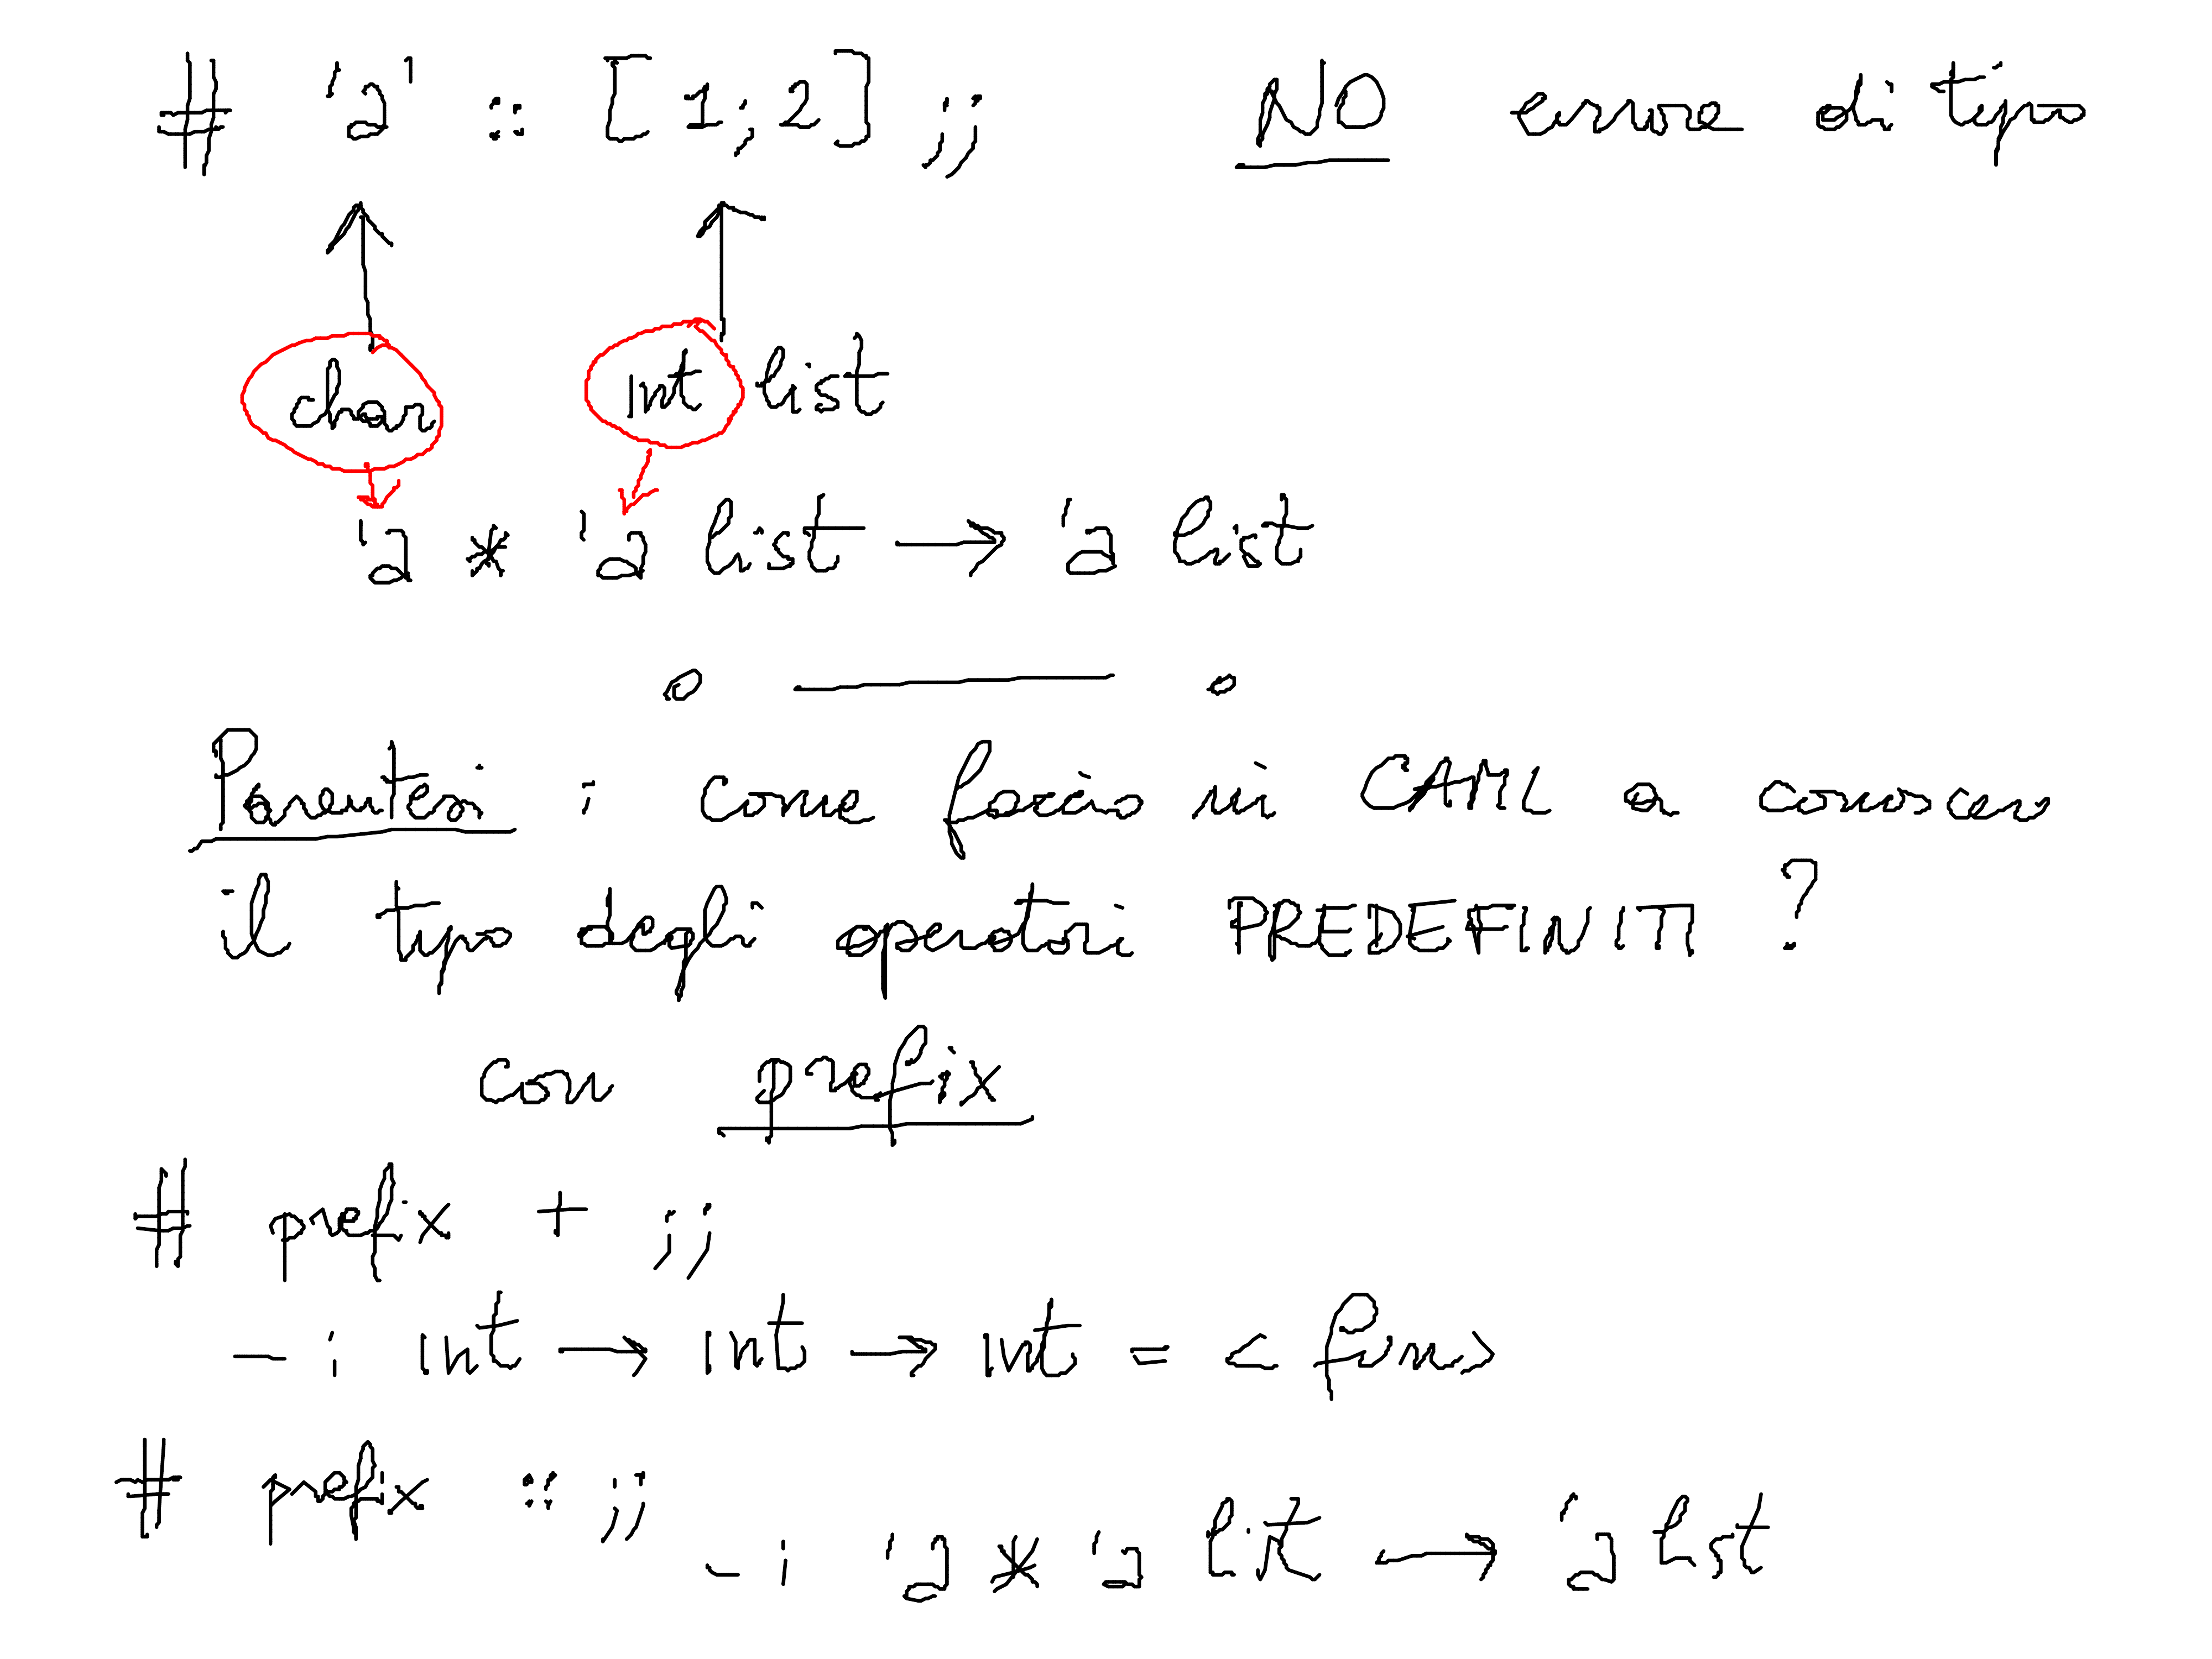 # 'a' :: [1;2] ;; NO errore di tipo
char int list
'a * 'a list → 'a list
Parentesi : come faccio in CAML a conoscere
il tipo degli operatori PREDEFINITI ?
con prefix
# prefix + ;;
- : int → int → int = <fun>
# prefix :: ;;
- : 'a * 'a list → 'a list